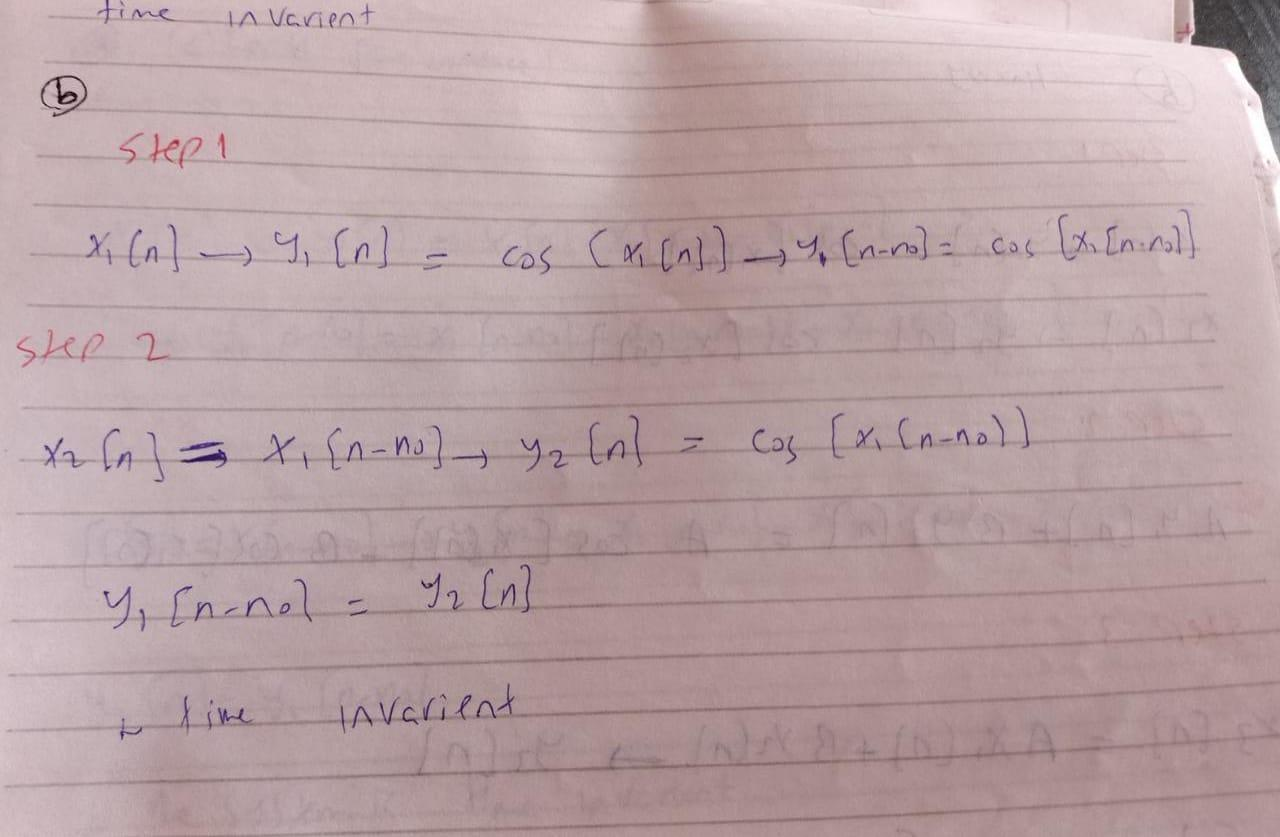 time invarient
(b)
Step 1
x₁[n] → y₁[n] = cos[x₁[n]] → y₁[n-n₀] = cos[x₁[n-n₀]]
Step 2
x₂[n] = x₁[n-n₀] → y₂[n] = cos[x₁[n-n₀]]
y₁[n-n₀] = y₂[n]
time invarient